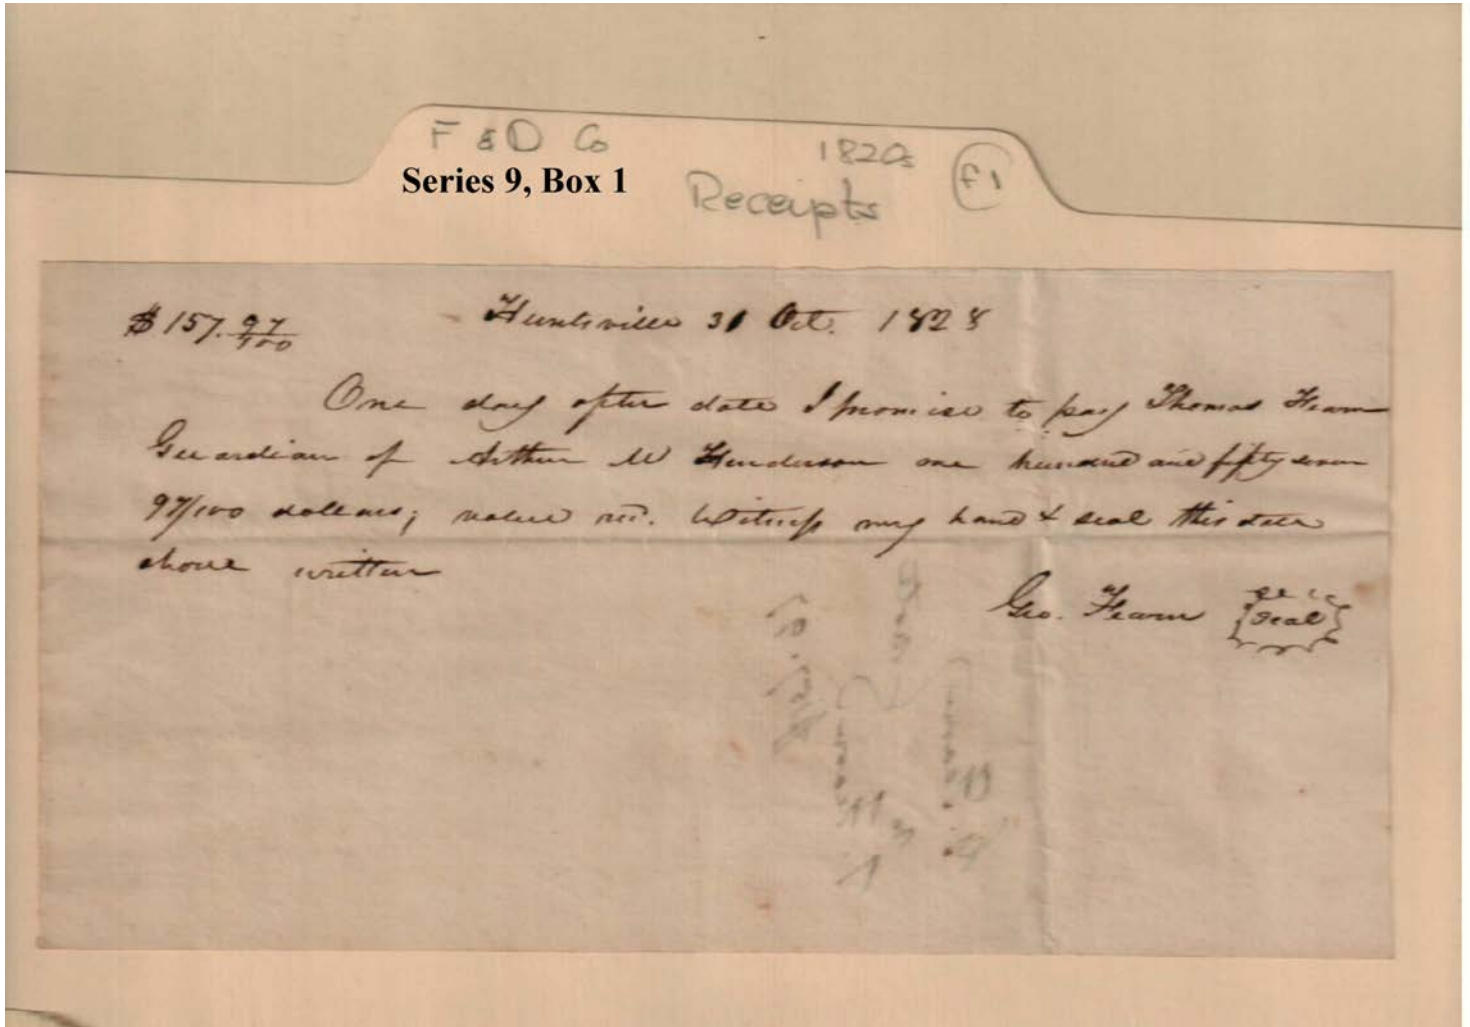 F & D Co 1820s
Series 9, Box 1
Receipts F1
$157.97/100 Huntsville 31 Oct. 1828
One day after date I promise to pay Thomas Fearn
Guardian of Arthur M Henderson one hundred and fifty seven
97/100 dollars; value rec. Witness my hand & seal this date
above written
Geo. Fearn Seal